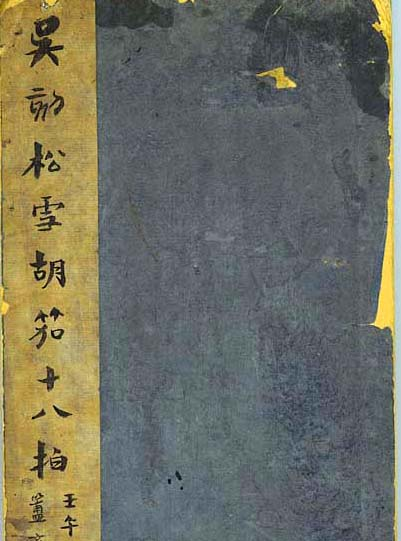 吳刻松雪胡笳十八拍
壬午